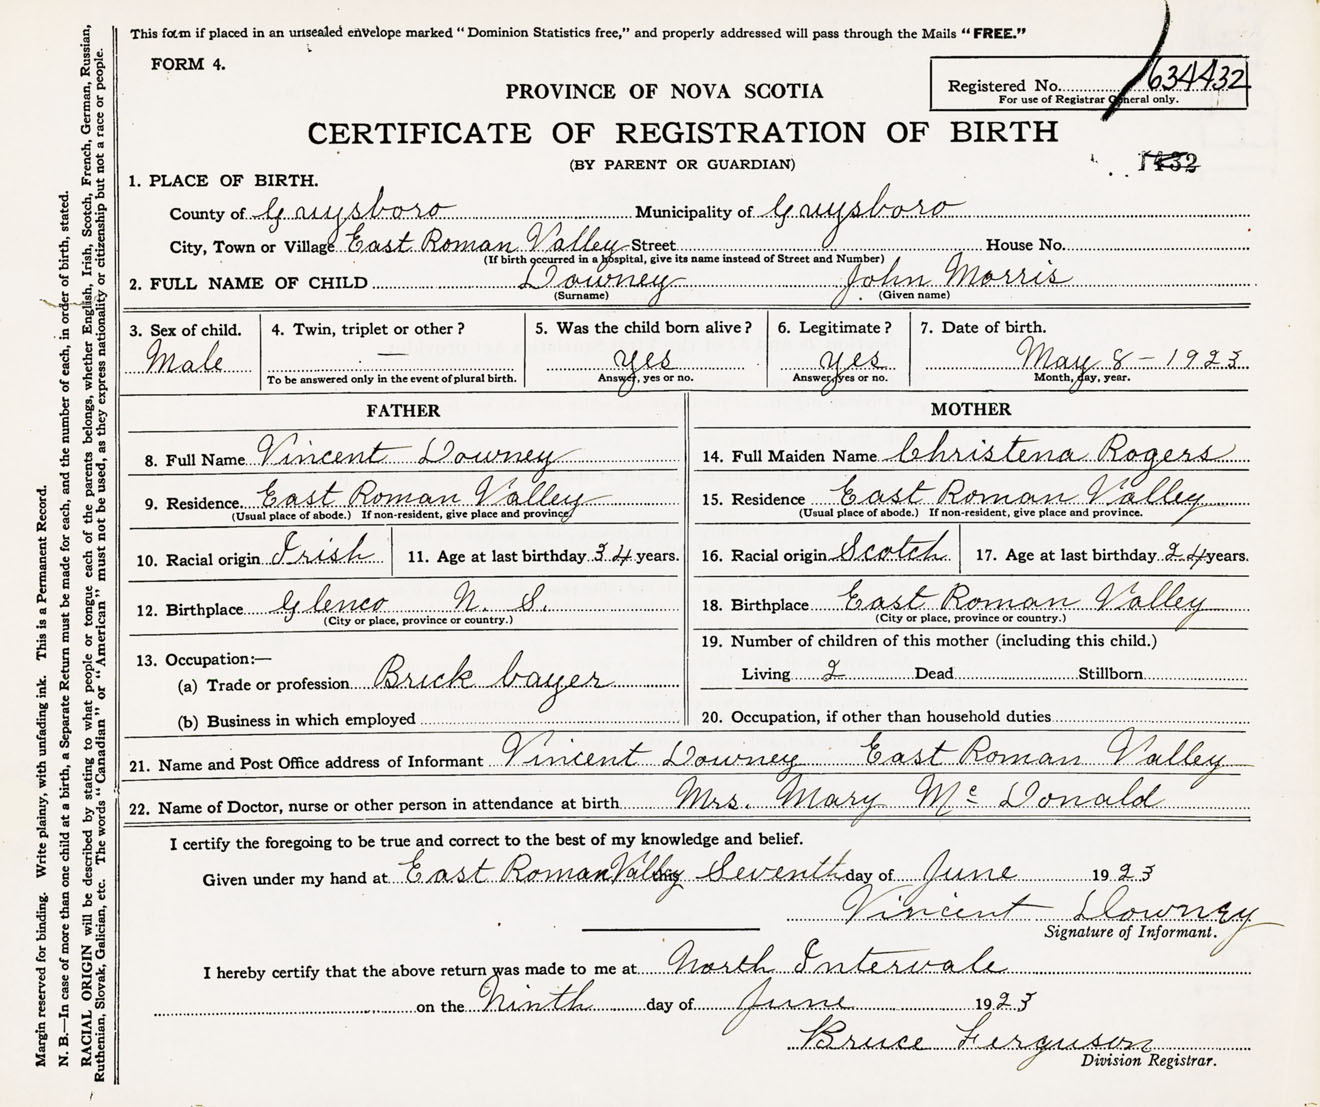 This form if placed in an unsealed envelope marked "Dominion Statistics free," and properly addressed will pass through the Mails "FREE."
FORM 4.
Registered No. 634432
For use of Registrar General only.
PROVINCE OF NOVA SCOTIA
CERTIFICATE OF REGISTRATION OF BIRTH
(BY PARENT OR GUARDIAN)
1432
1. PLACE OF BIRTH.
County of Guysboro Municipality of Guysboro
City, Town or Village East Roman Valley Street House No.
(If birth occurred in a hospital, give its name instead of Street and Number)
2. FULL NAME OF CHILD Downey John Morris
(Surname) (Given name)
3. Sex of child. 4. Twin, triplet or other? 5. Was the child born alive? 6. Legitimate? 7. Date of birth.
Male — yes yes May 8 - 1923
To be answered only in the event of plural birth. Answer, yes or no. Answer, yes or no. Month, day, year.
FATHER
8. Full Name Vincent Downey
9. Residence East Roman Valley
(Usual place of abode.) If non-resident, give place and province.
10. Racial origin Irish 11. Age at last birthday 34 years.
12. Birthplace Glenco N. S.
(City or place, province or country.)
13. Occupation:—
(a) Trade or profession Brick Layer
(b) Business in which employed
MOTHER
14. Full Maiden Name Christena Rogers
15. Residence East Roman Valley
(Usual place of abode.) If non-resident, give place and province.
16. Racial origin Scotch 17. Age at last birthday 24 years.
18. Birthplace East Roman Valley
(City or place, province or country.)
19. Number of children of this mother (including this child.)
Living 2 Dead Stillborn
20. Occupation, if other than household duties
21. Name and Post Office address of Informant Vincent Downey East Roman Valley
22. Name of Doctor, nurse or other person in attendance at birth Mrs. Mary McDonald
I certify the foregoing to be true and correct to the best of my knowledge and belief.
Given under my hand at East Roman Valley this Seventh day of June 1923
Vincent Downey
Signature of Informant.
I hereby certify that the above return was made to me at North Intervale
on the Ninth day of June 1923
Bruce Ferguson
Division Registrar.
Margin reserved for binding. Write plainly, with unfading ink. This is a Permanent Record.
N. B.—In case of more than one child at a birth, a Separate Return must be made for each, and the number of each, in order of birth, stated.
RACIAL ORIGIN will be described by stating to what people or tongue each of the parents belongs, whether English, Irish, Scotch, French, German, Russian,
Ruthenian, Slovak, Galician, etc. The words "Canadian" or "American" must not be used, as they express nationality or citizenship but not a race or people.